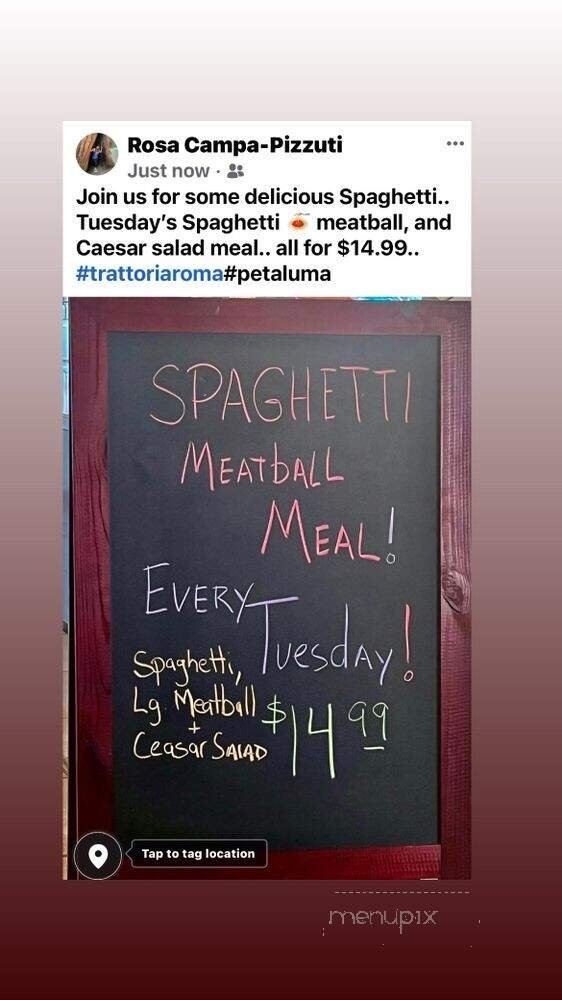 Rosa Campa-Pizzuti
Just now ·
Join us for some delicious Spaghetti..
Tuesday's Spaghetti 🍝 meatball, and
Caesar salad meal.. all for $14.99..
#trattoriaroma#petaluma
SPAGHETTI
MEATbALL
MEAL!
EVERY
TuesdAy!
Spaghetti,
Lg. Meatball
+
Ceasar SALAD
$14 99
Tap to tag location
menupix